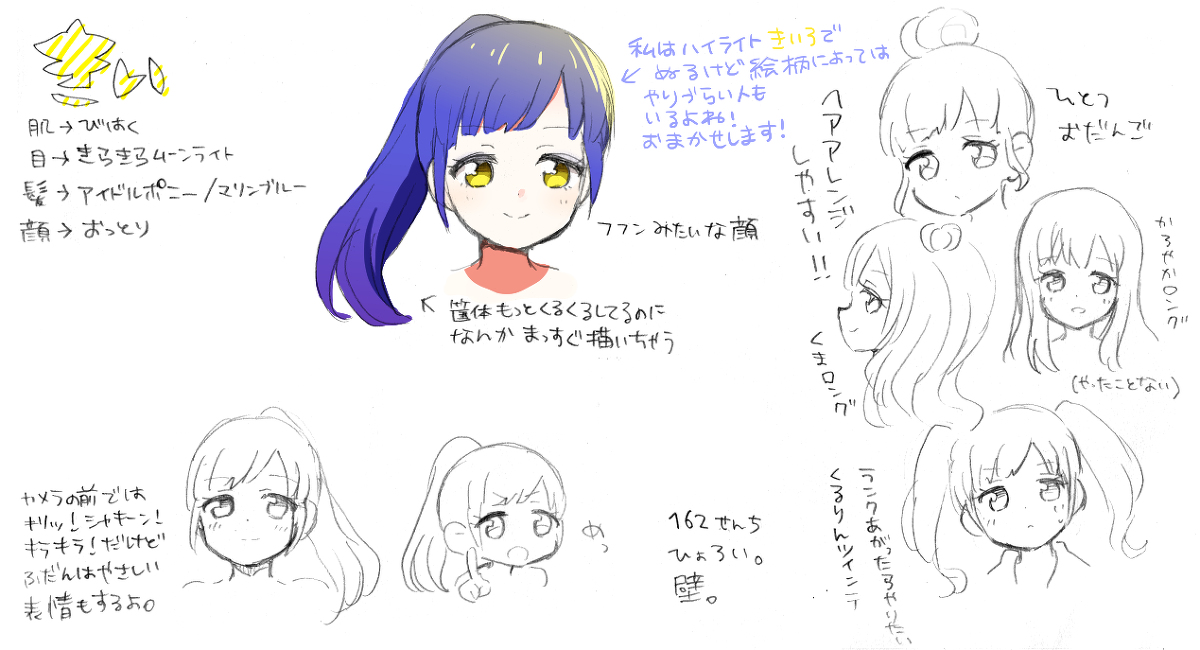 肌→びはく
目→きらきらムーンライト
髪→アイドルポニー/マリンブルー
顔→おっとり
私はハイライトきいろで
ぬるけど絵柄によっては
やりづらい人も
いるよね!
おまかせします!
フフンみたいな顔
筐体もっとくるくるしてるのに
なんかまっすぐ描いちゃう
ヘアアレンジ
しやすい!!
ひとつ
おだんご
かろやかロング
(やったことない)
くまロング
ランクあがったらやりたい
くるりんツインテ
カメラの前では
キリッ!シャキーン!
キラキラ!だけど
ふだんはやさしい
表情もするよ。
めっ
162せんち
ひょろい。
壁。